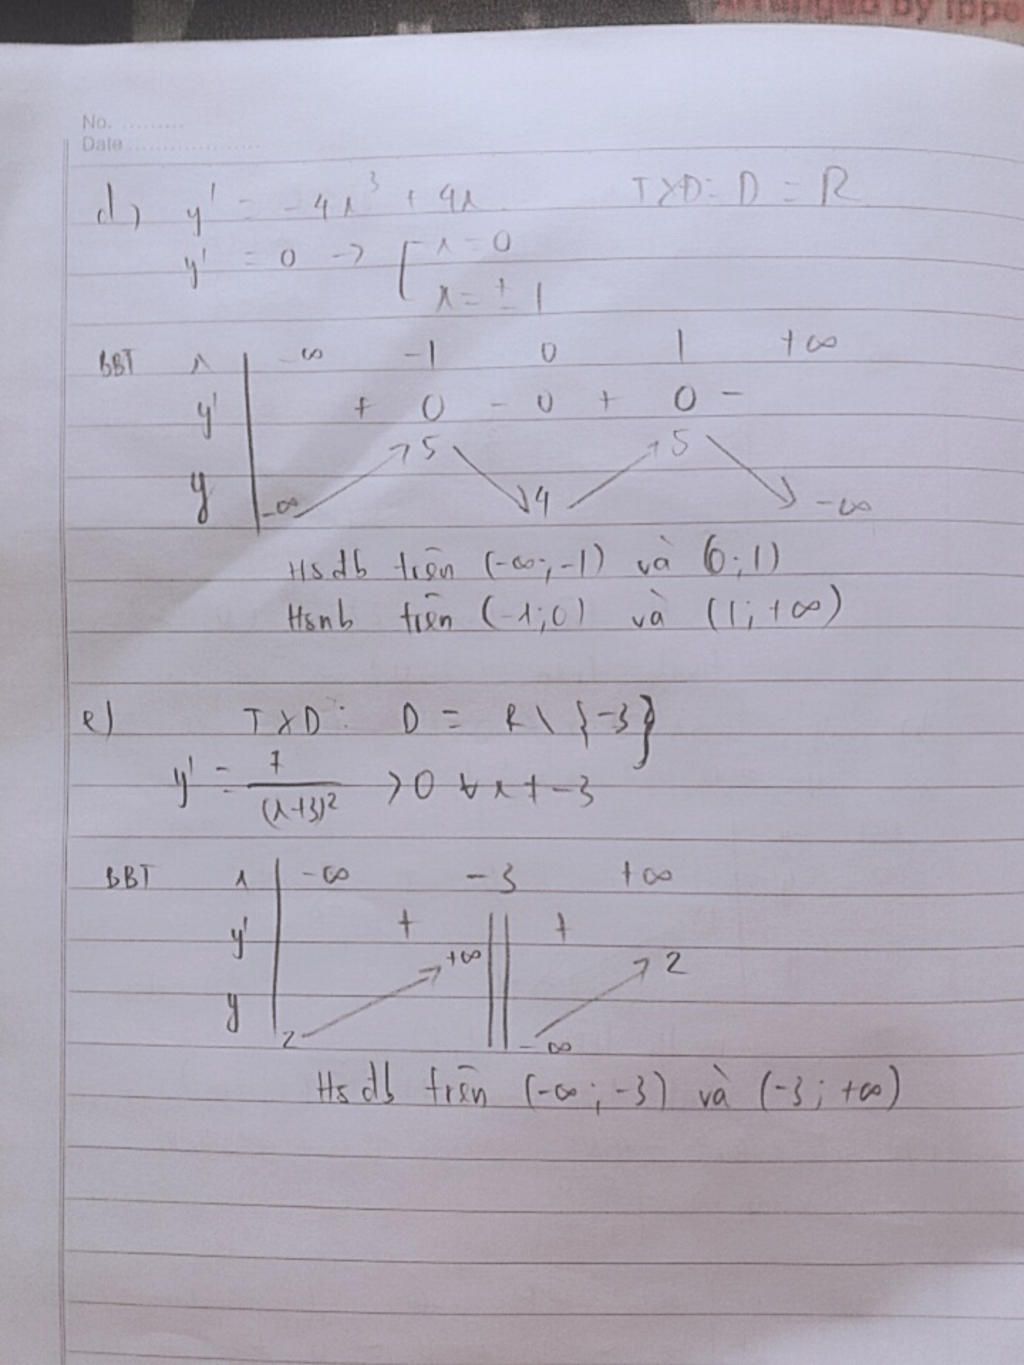 Arranged by Ippe
No. ..........
Date ....................
d) y' = -4x³ + 4x TXD: D = R
y' = 0 → [ x = 0
x = ± 1
BBT x -∞ -1 0 1 +∞
y' + 0 - 0 + 0 -
5 5
y -∞ 4 -∞
Hsđb trên (-∞; -1) và (0; 1)
Hsnb trên (-1; 0) và (1; +∞)
e) TXD: D = R \ {-3}
y' = 7/(x+3)² > 0 ∀ x ≠ -3
BBT x -∞ -3 +∞
y' + +
+∞ 2
y 2 -∞
Hs đb trên (-∞; -3) và (-3; +∞)